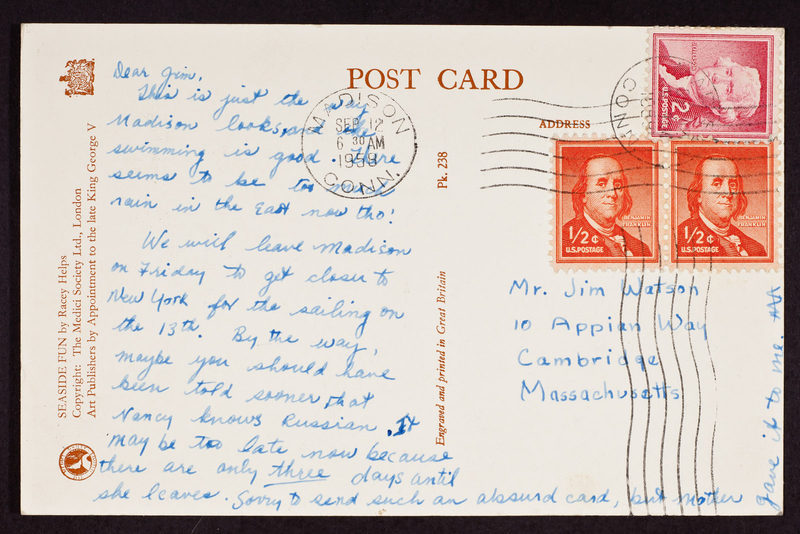 Dear Jim,
This is just the way
Madison looks, and the
swimming is good. There
seems to be too much
rain in the East now tho!
We will leave Madison
on Friday to get closer to
New York for the sailing on
the 13th. By the way,
maybe you should have
been told sooner that
Nancy knows Russian. It
may be too late now because
there are only three days until
she leaves. Sorry to send such an absurd card, but mother
gave it to me.
POST CARD
ADDRESS
MADISON
SEP 12
6 30 AM
CONN.
CONN.
2¢
U.S. POSTAGE
BENJAMIN
FRANKLIN
1/2¢
U.S. POSTAGE
BENJAMIN
FRANKLIN
1/2¢
U.S. POSTAGE
Mr. Jim Watson
10 Appian Way
Cambridge
Massachusetts
Pk. 238
Engraved and printed in Great Britain
SEASIDE FUN by Racey Helps
Copyright: The Medici Society Ltd., London
Art Publishers by Appointment to the late King George V